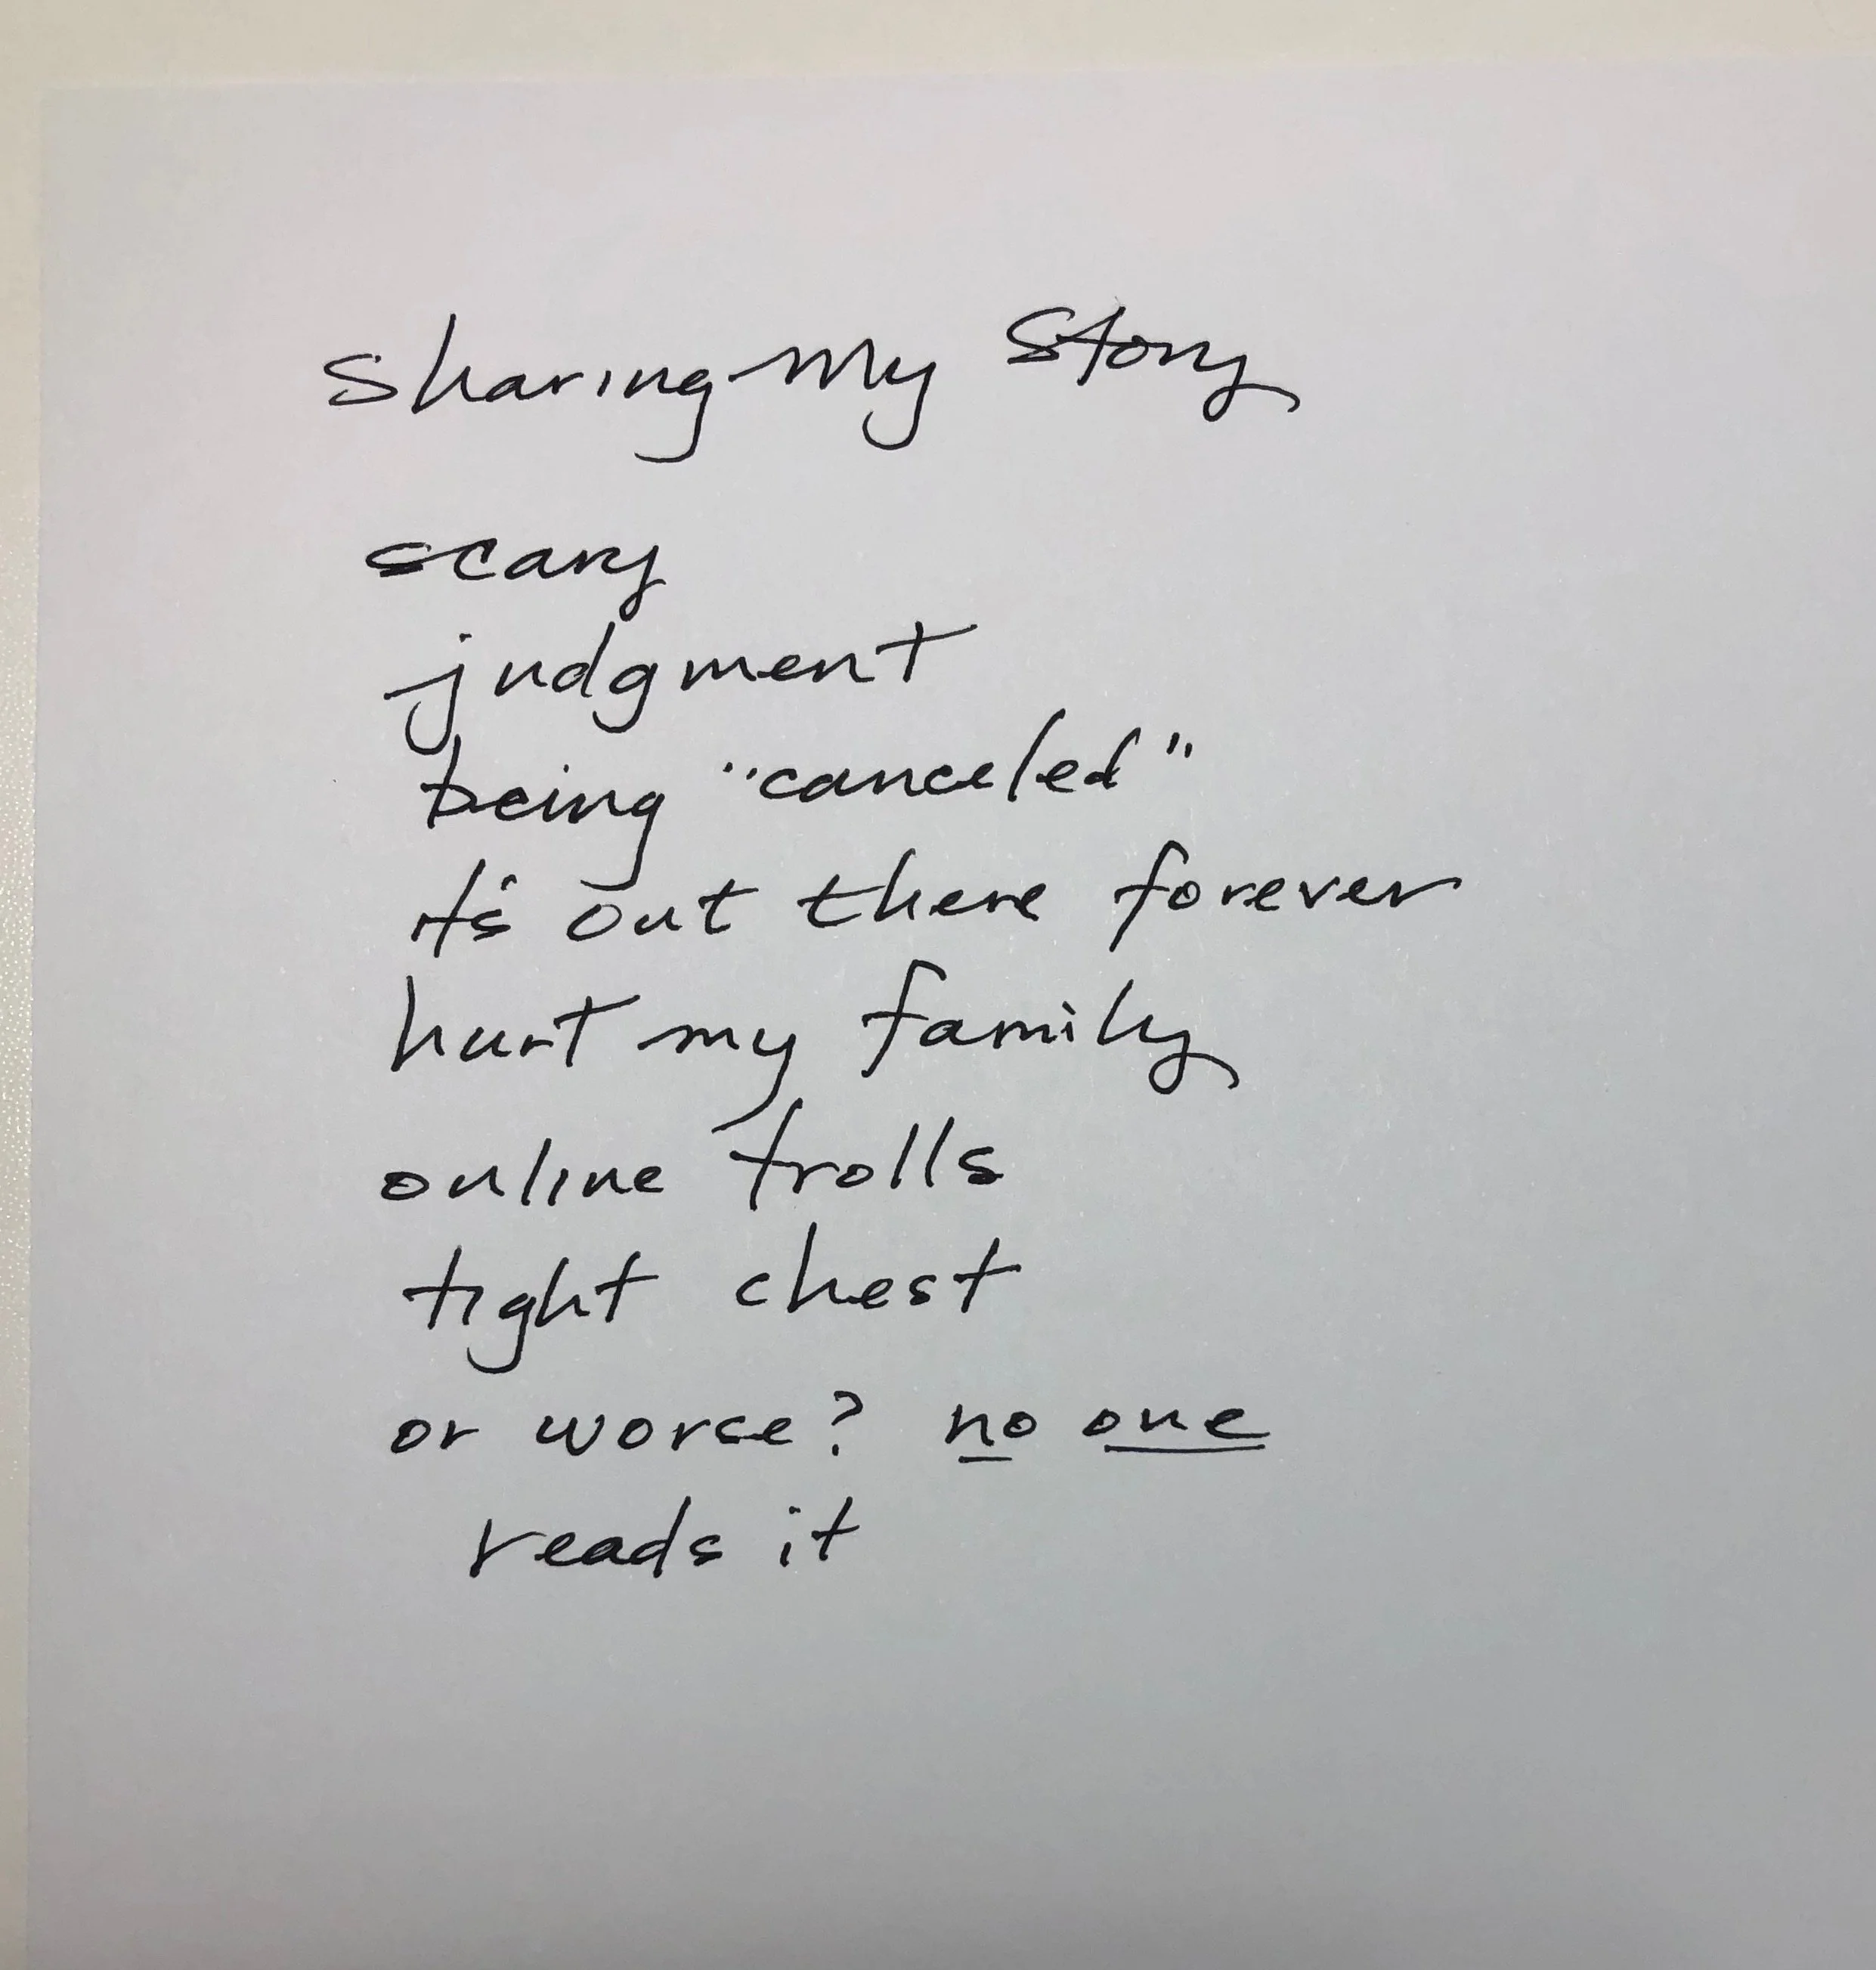 Sharing My Story
scary
judgment
being "canceled"
it's out there forever
hurt my family
online trolls
tight chest
or worse? no one
reads it